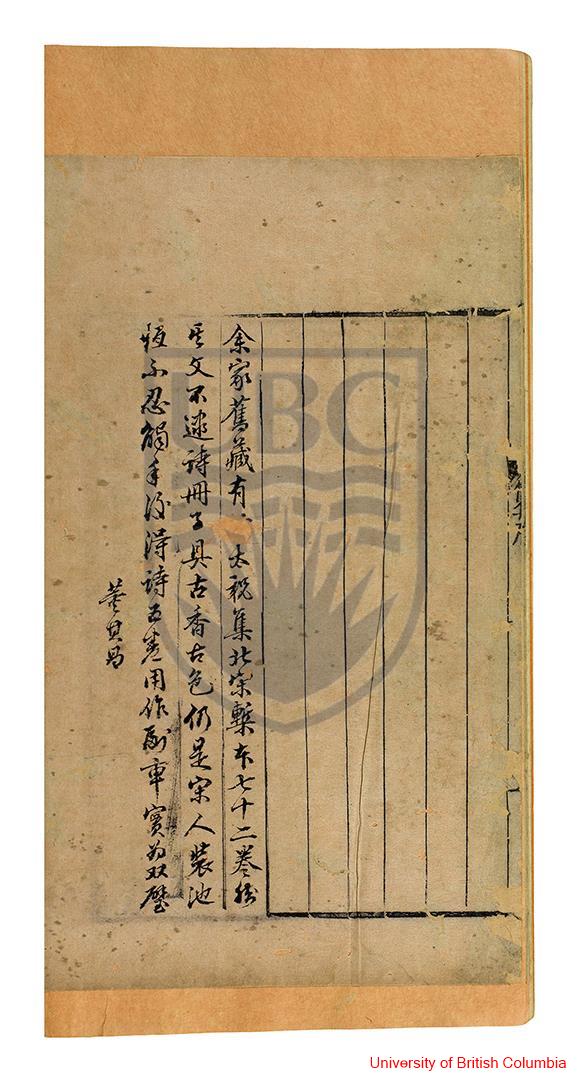 余家舊藏有太祝集北宋槧本七十二卷
其文不逮詩冊子具古香古色仍是宋人裝池
不忍觸手後得詩五卷用作副車寶為双璧
董其昌
UBC
University of British Columbia